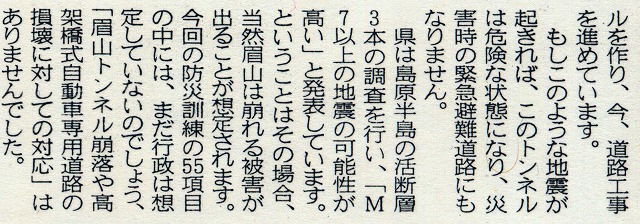 ルを作り、今、道路工事
を進めています。
　もしこのような地震が
起きれば、このトンネル
は危険な状態になり、災
害時の緊急避難道路にも
なりません。
　県は島原半島の活断層
3本の調査を行い、「M
7以上の地震の可能性が
高い」と発表しています。
ということはその場合、
当然眉山は崩れる被害が
出ることが想定されます。
今回の防災訓練の55項目
の中には、まだ行政は想
定していないのでしょう、
「眉山トンネル崩落や高
架橋式自動車専用道路の
損壊に対しての対応」は
ありませんでした。